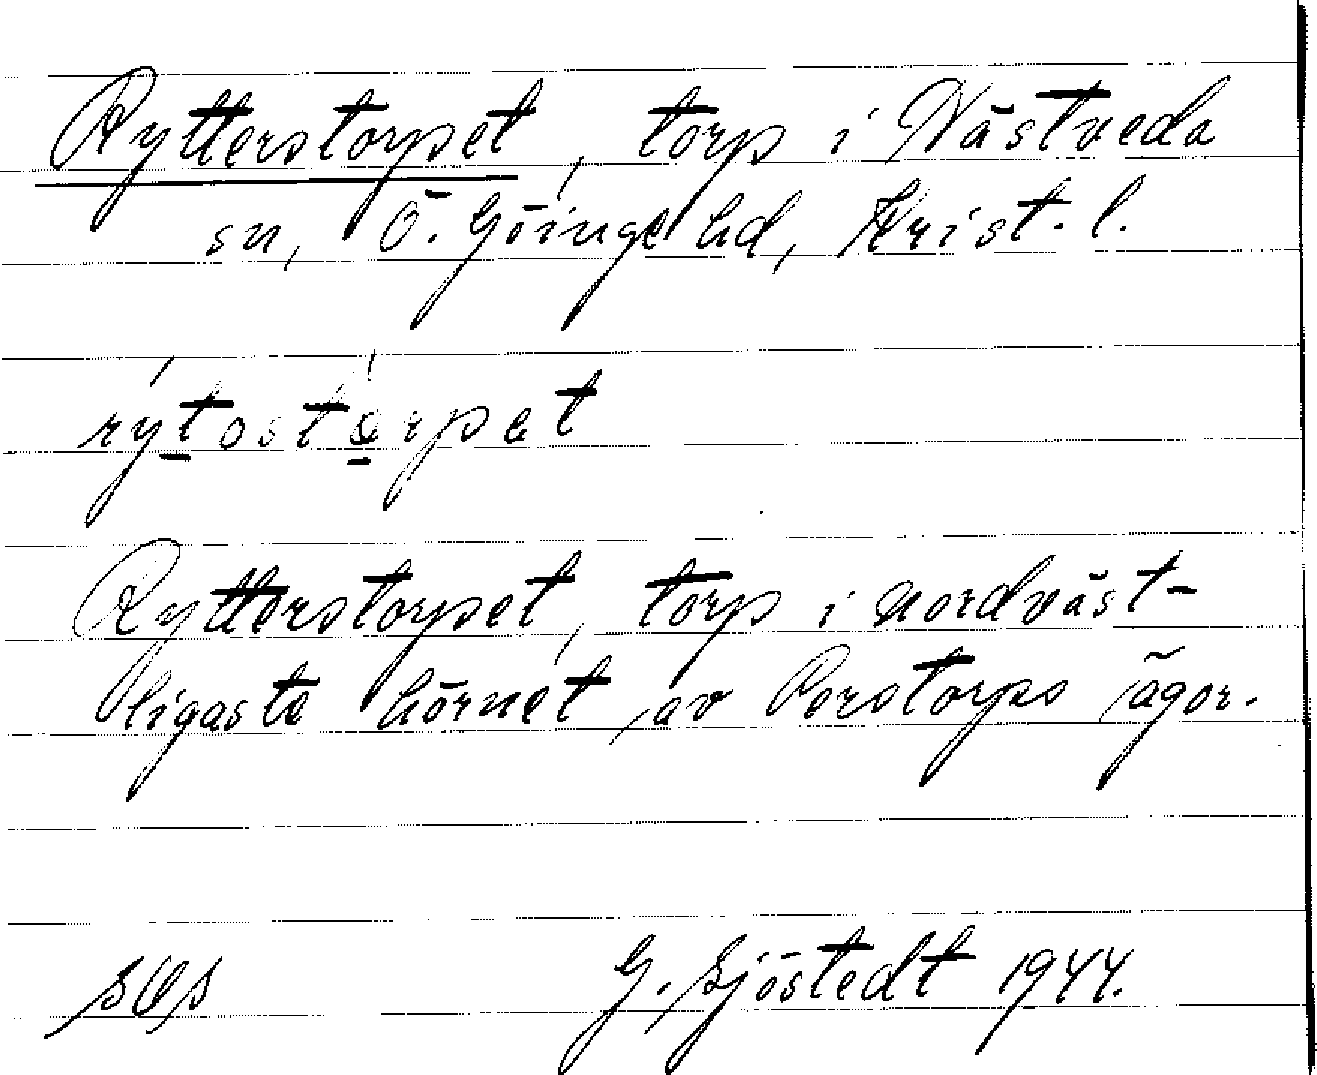 Rytterstorpet, torp i Västveda
sn, Ö. Göinge hd, Krist. l.
Rytterstorpet, torp i nordväst-
ligaste hörnet av Perstorps ägor.
G. Sjöstedt 1944.